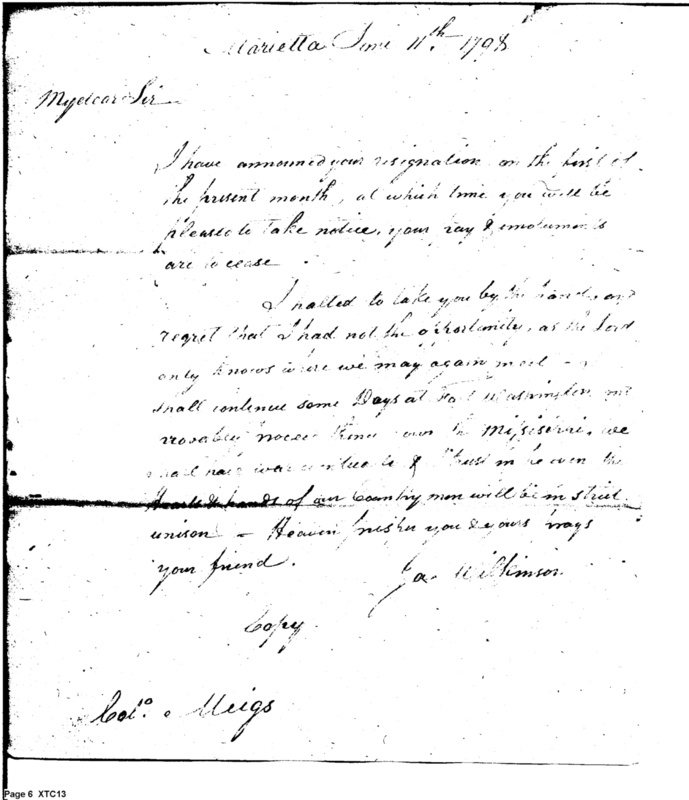 Marietta June 11th. 1798
My dear Sir
I have announced your resignation on the first of
the present month, at which time you will be
pleased to take notice, your pay & emoluments
are to cease
I halted to take you by the hand, and
regret that I had not the opportunity, as the Lord
only knows where we may again meet – I
shall continue some Days at Fort Washington and
probably proceed thence down the Missisirri, we
shall have war & I trust in heaven the
Hearts & hands of our Country men will be in strict
unison – Heaven prosper you & yours prays
your friend.
Ja. Wilkinson
Copy
Meigs
Page 6 XTC13